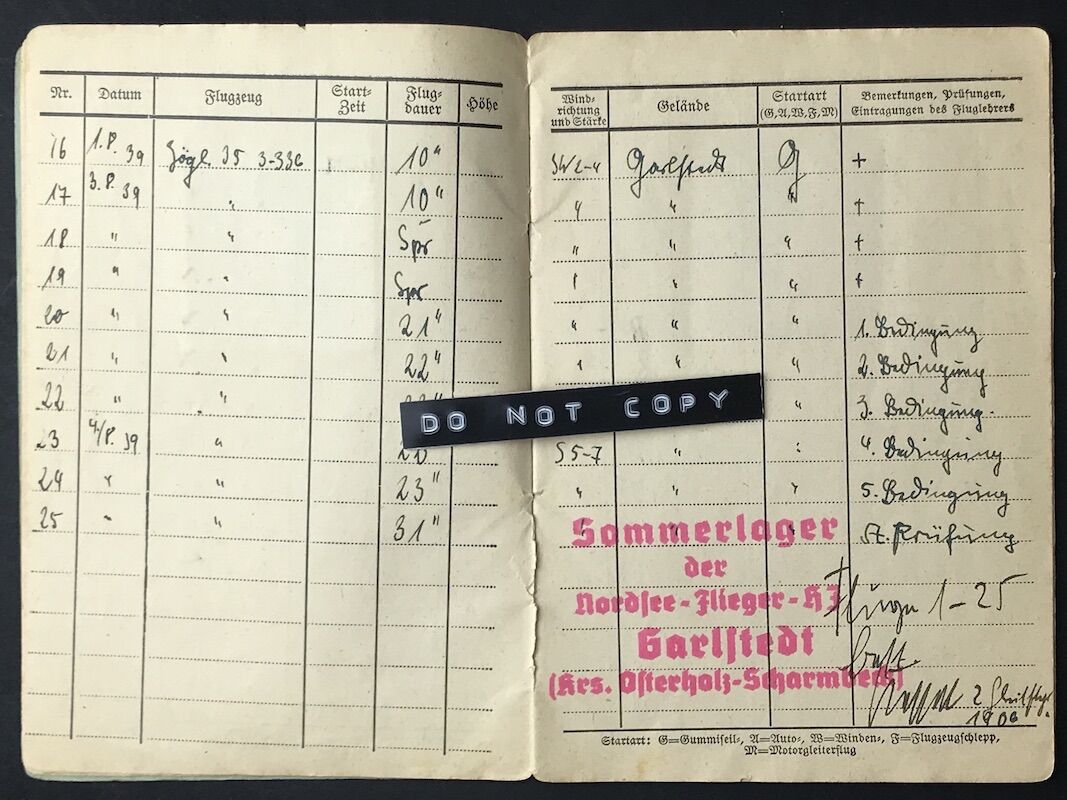 Nr. Datum Flugzeug Start-Zeit Flug-dauer Höhe
16 1.8.39 Zögl. 35 3-336 10"
17 3.8.39 " 10"
18 " " Spr
19 " " Spr
20 " " 21"
21 " " 22"
22 " "
23 4/8.39 "
24 " " 23"
25 " " 31"
Wind-richtung und Stärke Gelände Startart (G,A,W,F,M) Bemerkungen, Prüfungen, Eintragungen des Fluglehrers
SW 2-4 Garlstedt G +
" " " +
" " " +
" " " +
" " " 1. Bedingung
" " " 2. Bedingung
" 3. Bedingung.
S 5-7 " " 4. Bedingung
" " " 5. Bedingung
" " " A. Prüfung
DO NOT COPY
Sommerlager
der
Nordsee-Flieger-HJ
Garlstedt
(Krs. Osterholz-Scharmbeck)
Flüge 1-25
best.
Startart: G=Gummiseil-, A=Auto-, W=Winden-, F=Flugzeugschlepp,
M=Motorgleiterflug